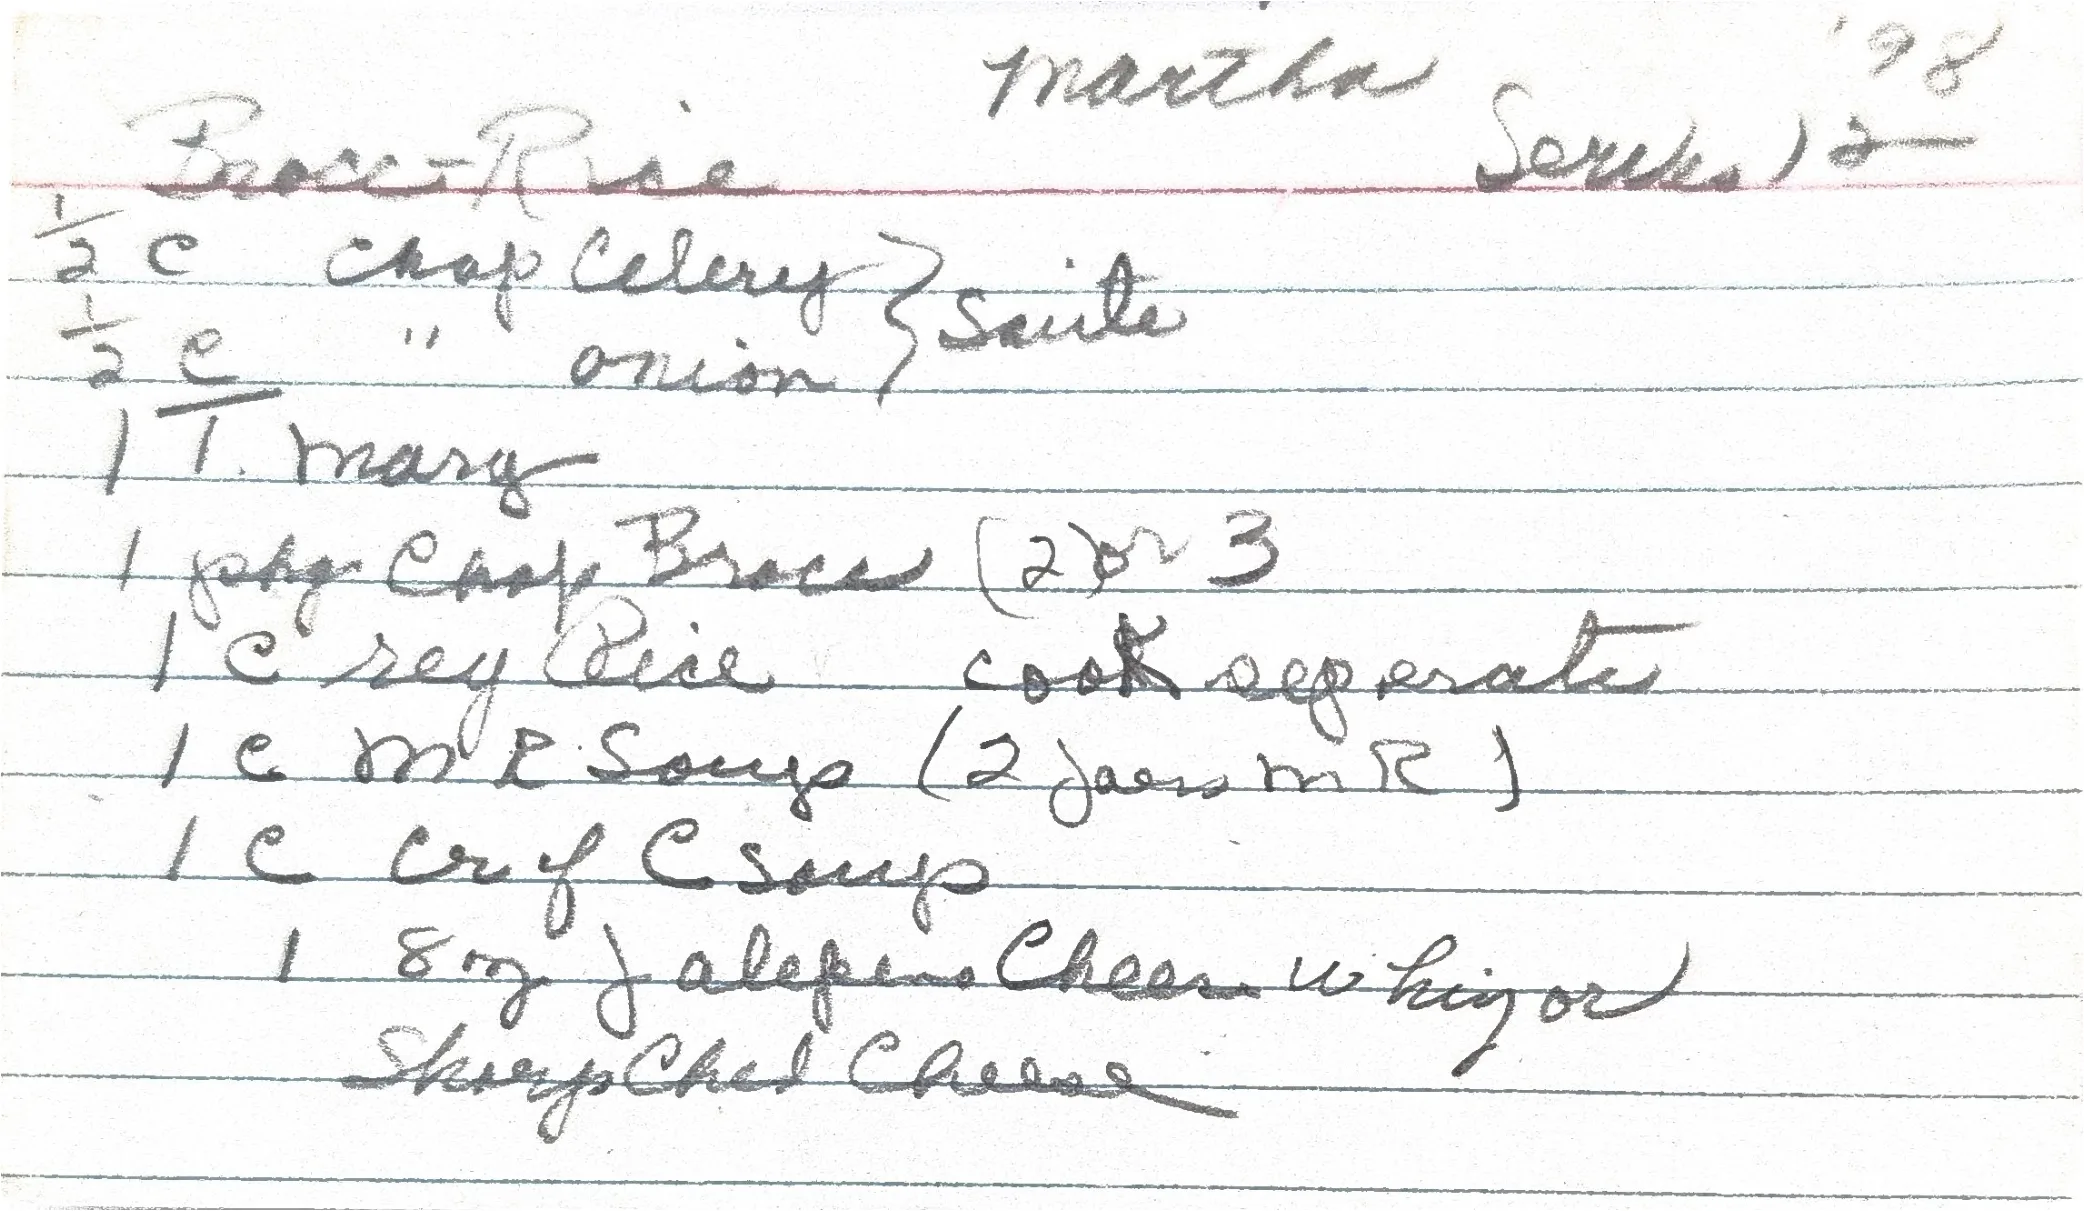 Martha '98
Brocc-Rice Serves 12
1/2 c chop Celery } Saute
1/2 c " onion
1 T. marg
1 pkg Chop Brocc (2) or 3
1 C reg Rice cook seperate
1 C M R Soup (2 Jars M R)
1 C Cr of C soup
1 8 oz Jalepeno Cheese Whiz or
Sharp Ched Cheese